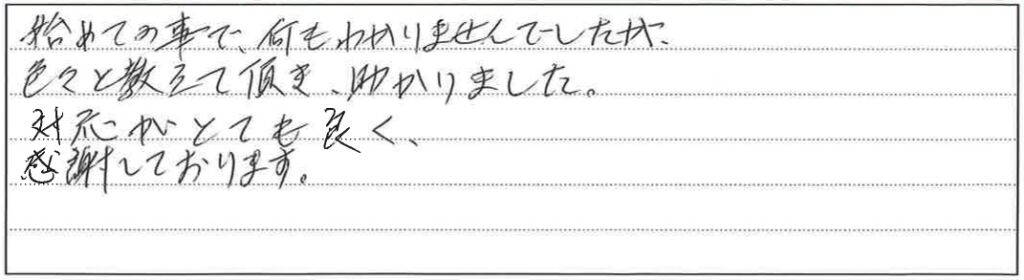 始めての事で、何もわかりませんでしたが、
色々と教えて頂き、助かりました。
対応がとても良く、
感謝しております。